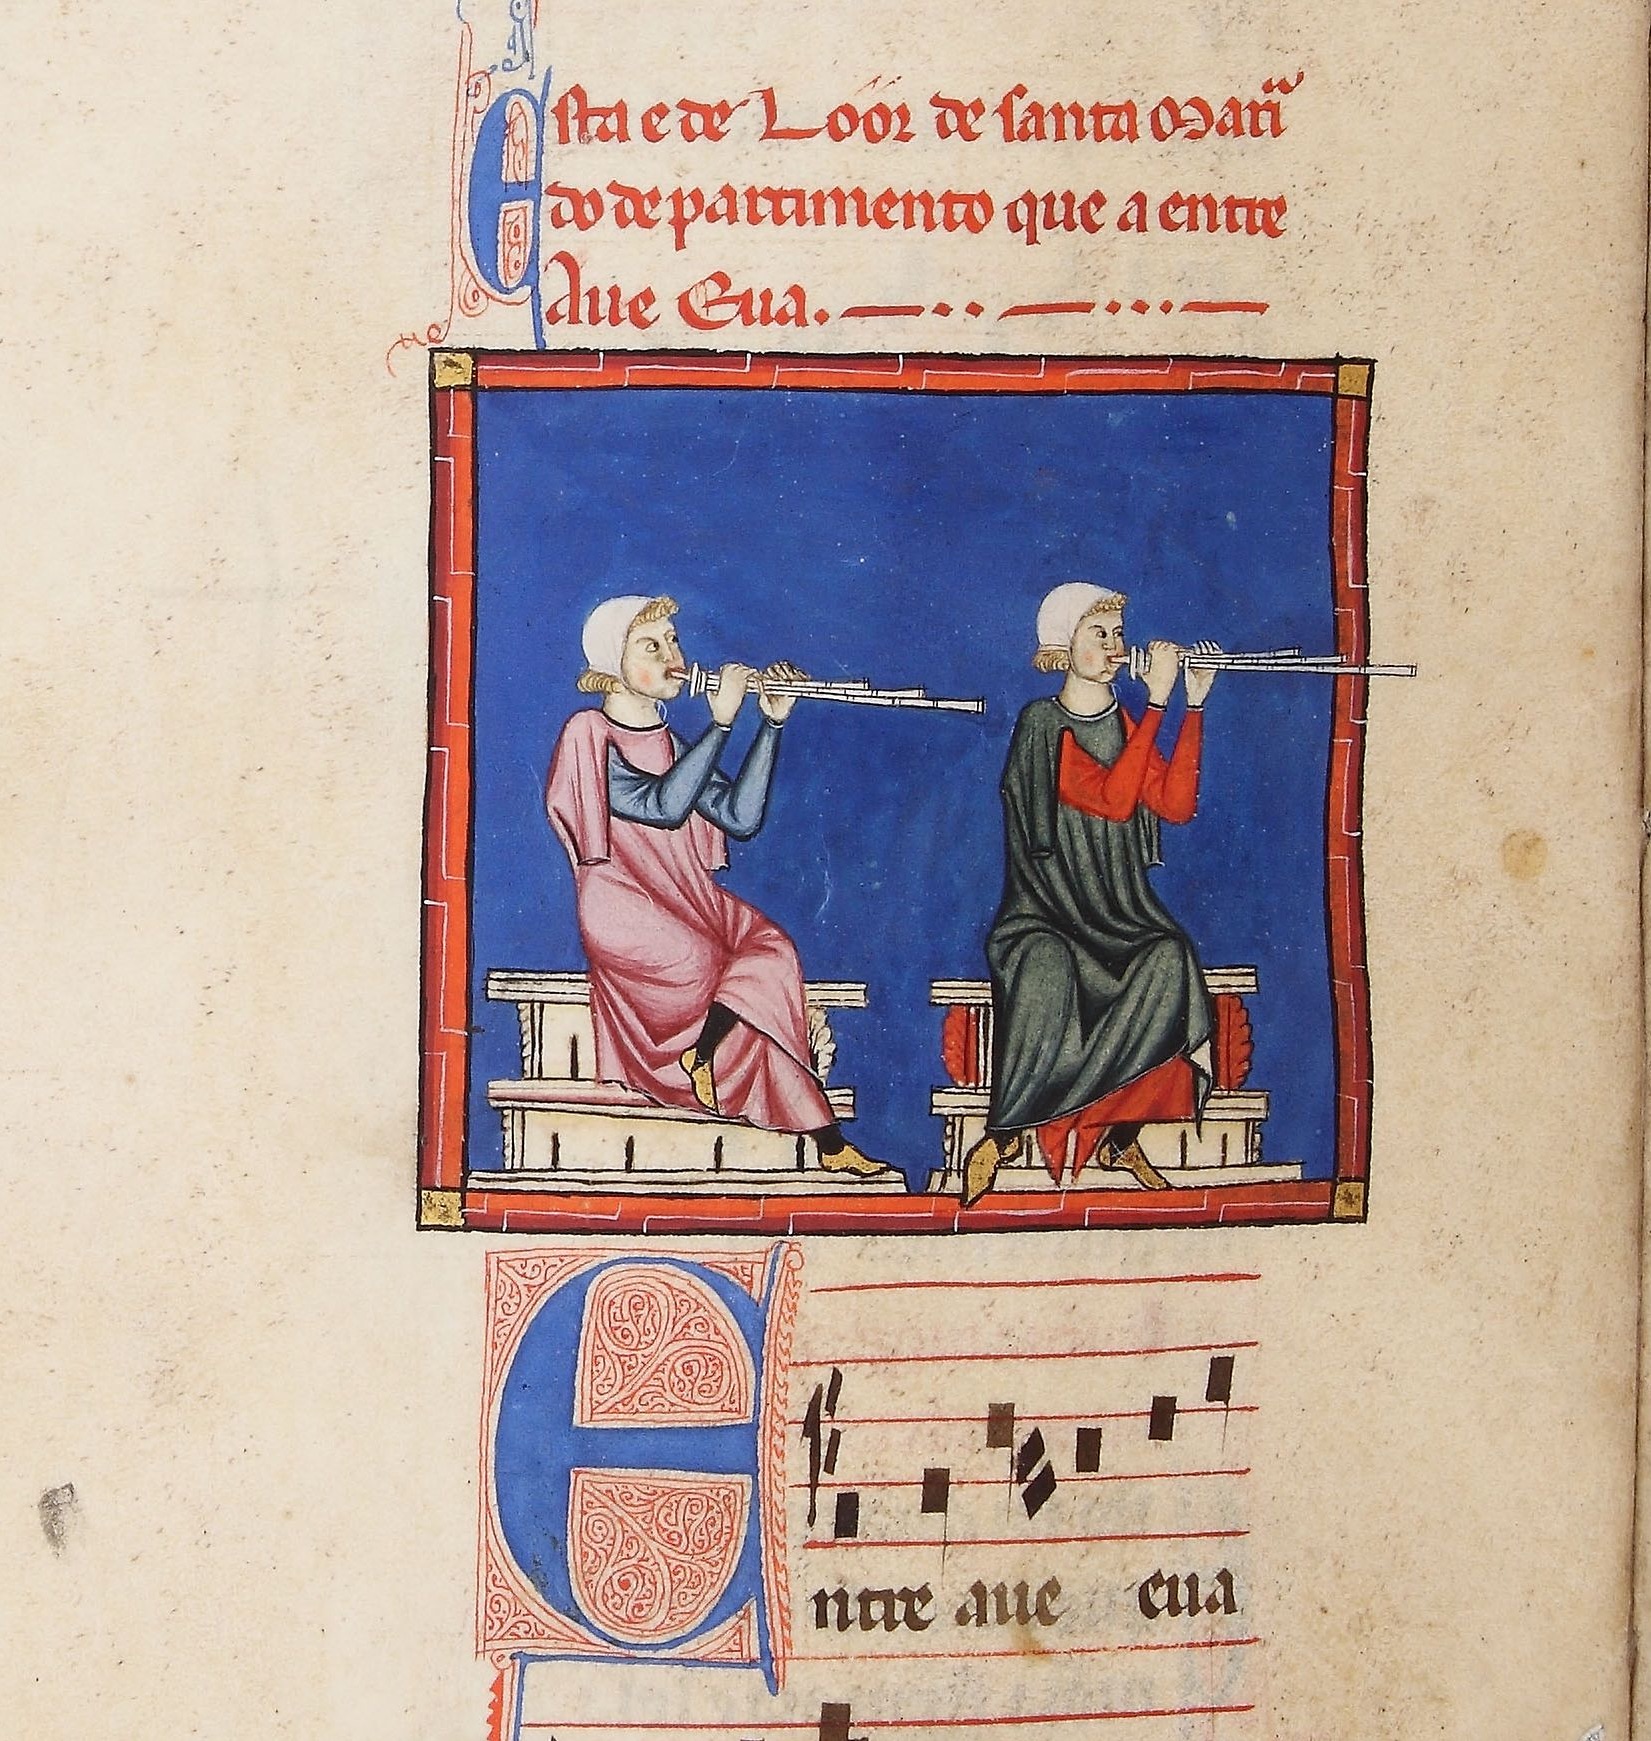 Esta e de Loor de santa Mari͞a
do departimento que a entre
Aue Eua.
Entre aue eua